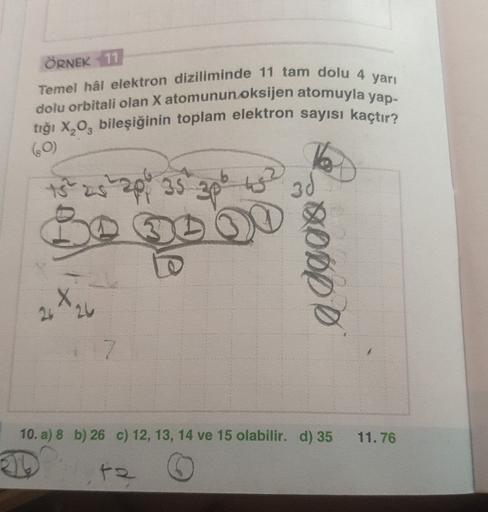 ÖRNEK 11
Temel hâl elektron diziliminde 11 tam dolu 4 yarı
dolu orbitali olan X atomunun oksijen atomuyla yap-
tığı X₂O₃ bileşiğinin toplam elektron sayısı kaçtır?
(₈O)
1s² 2s² 2p⁶ 3s² 3p⁶ 4s² 3d
1 1 3 1 3 1
10
26 X 26
7
10. a) 8 b) 26 c) 12, 13, 14 ve 15 olabilir. d) 35 11. 76
26 +2 6